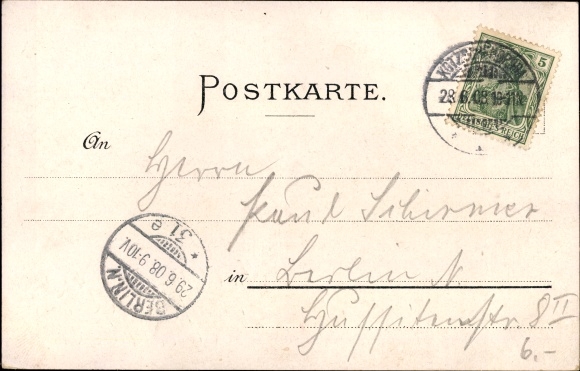 POSTKARTE.
5
28.6.08
DEUTSCHES REICH
An
Herrn
Paul Schirmer
in Berlin N
Hussitenstr. 8 II
BERLIN.N.
29.6.08.9-10V
* 31 e *
6.-